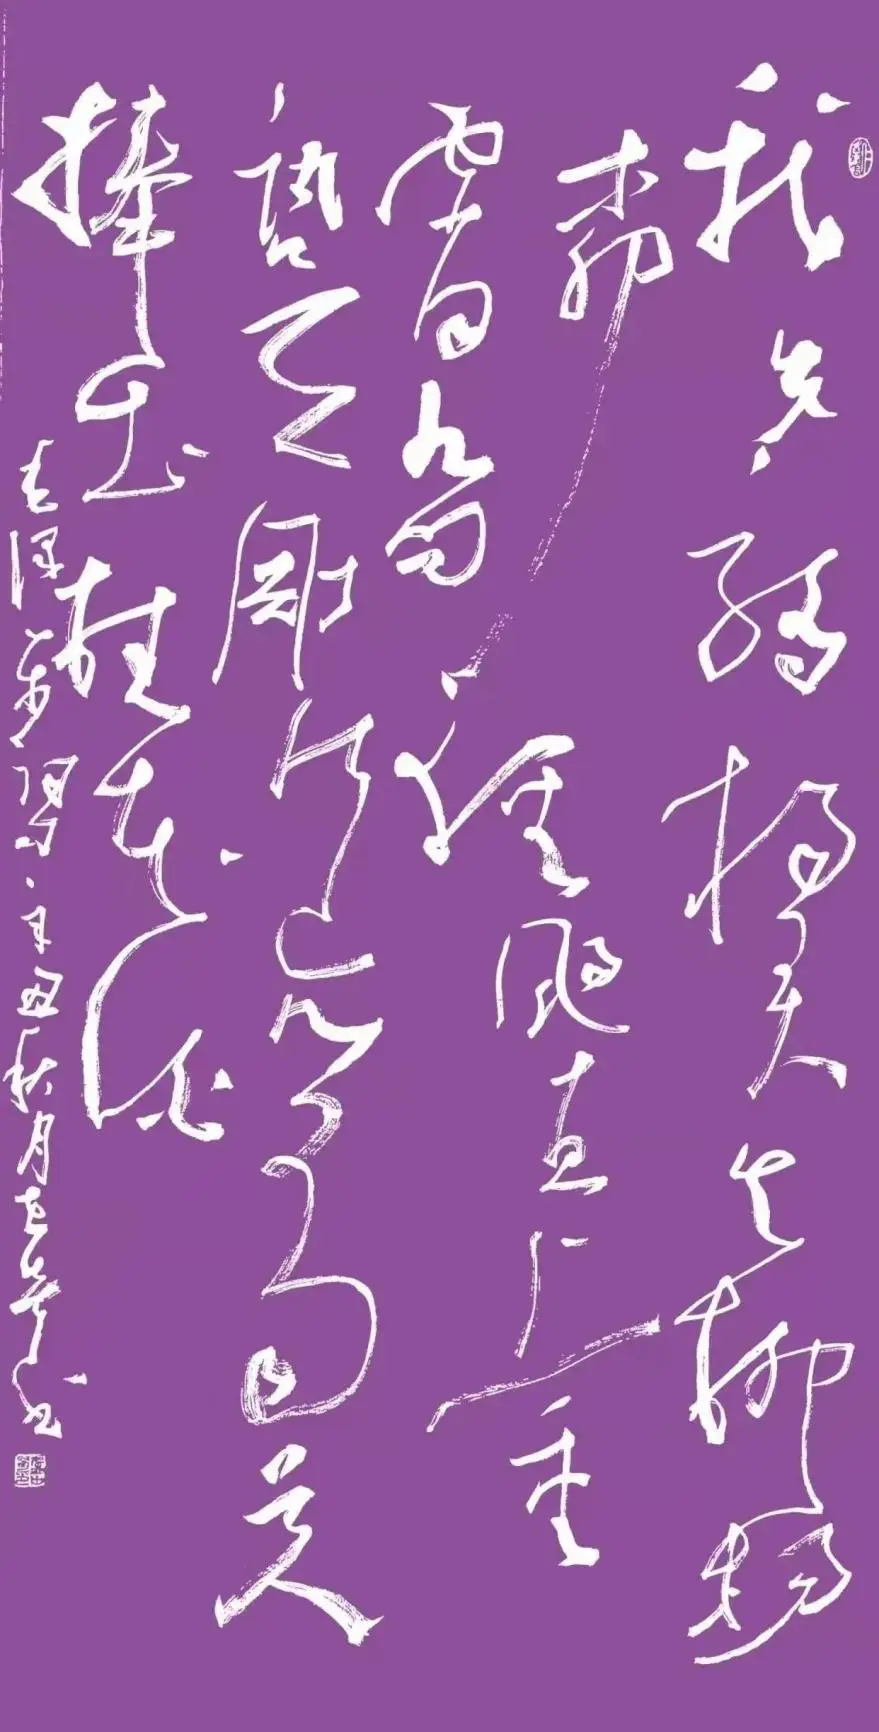 我失骄杨君失柳杨
柳轻飏直上重
霄九问
讯吴刚何所有吴
捧出桂花酒
毛泽东 辛丑秋月 书